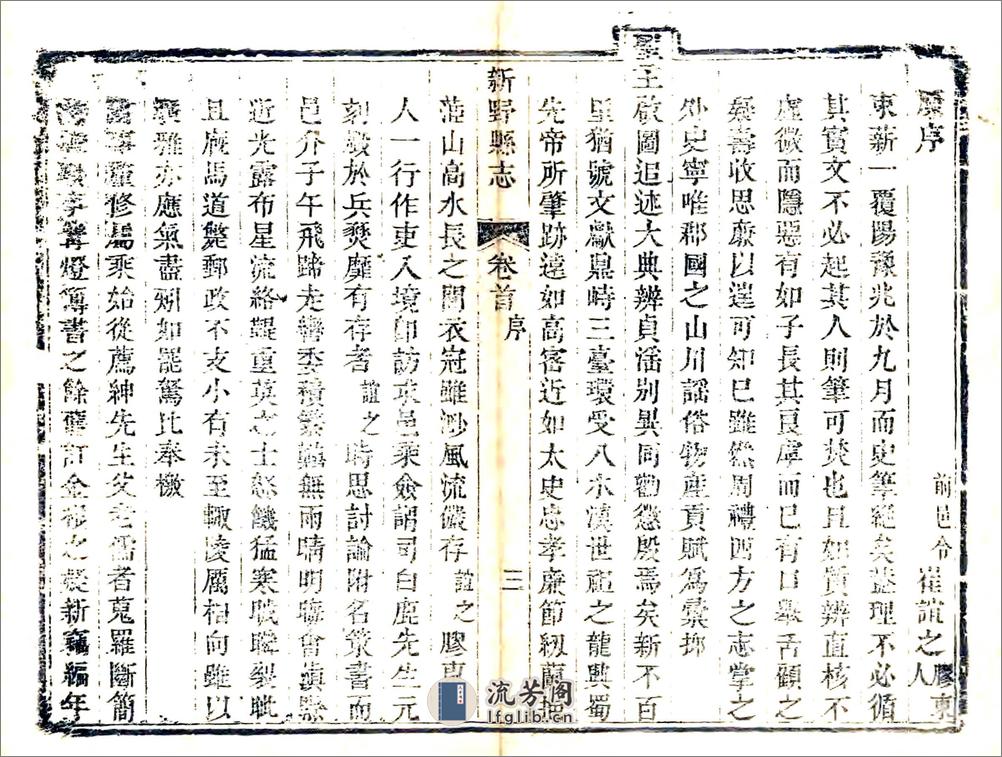 原序
前邑令 崔誼之 膠東人
東薪一覆陽豫兆於九月而史筆絕矣蓋理不必循
其實文不必起其人則筆可焚也且如質辨直核不
虛微而隱惡有如子長其夏虖而已有口舉舌顧之
疑壽收思廉以逞可知已雖然周禮四方之志掌之
外史寧唯郡國之山川謠俗物產貢賦為橐挪
聖王啟圖追述大典辨貞淆別異同勸懲殷焉矣新不百
里猶號文獻鼎時三臺環受八水漢世祖之龍興蜀
先帝所肇跡遠如高密近如太史忠孝廉節紉蘭
新野縣志 卷首 序 三
菃山高水長之間衣冠雖渺風流儼存誼之膠東
人一行作吏入境即訪求邑乘僉謂司白鹿先生元
刻燬於兵燹靡有存者誼之時思討論附名策書而
邑介子午飛蹄走轡委積 無雨晴明晦會滇黔
近光露布星流絡鞮重英之士怒饑猛寒戢 裂眦
且廄馬道斃郵政不支小有未至 陵厲相向雖以
雅亦應氣盡矧如罷駑比奉檄
修焉乘始從薦紳先生父老儒者蒐羅斷簡
燈簿書之餘 訂金根之 新竄編年
流芳阁
lfglib.cn